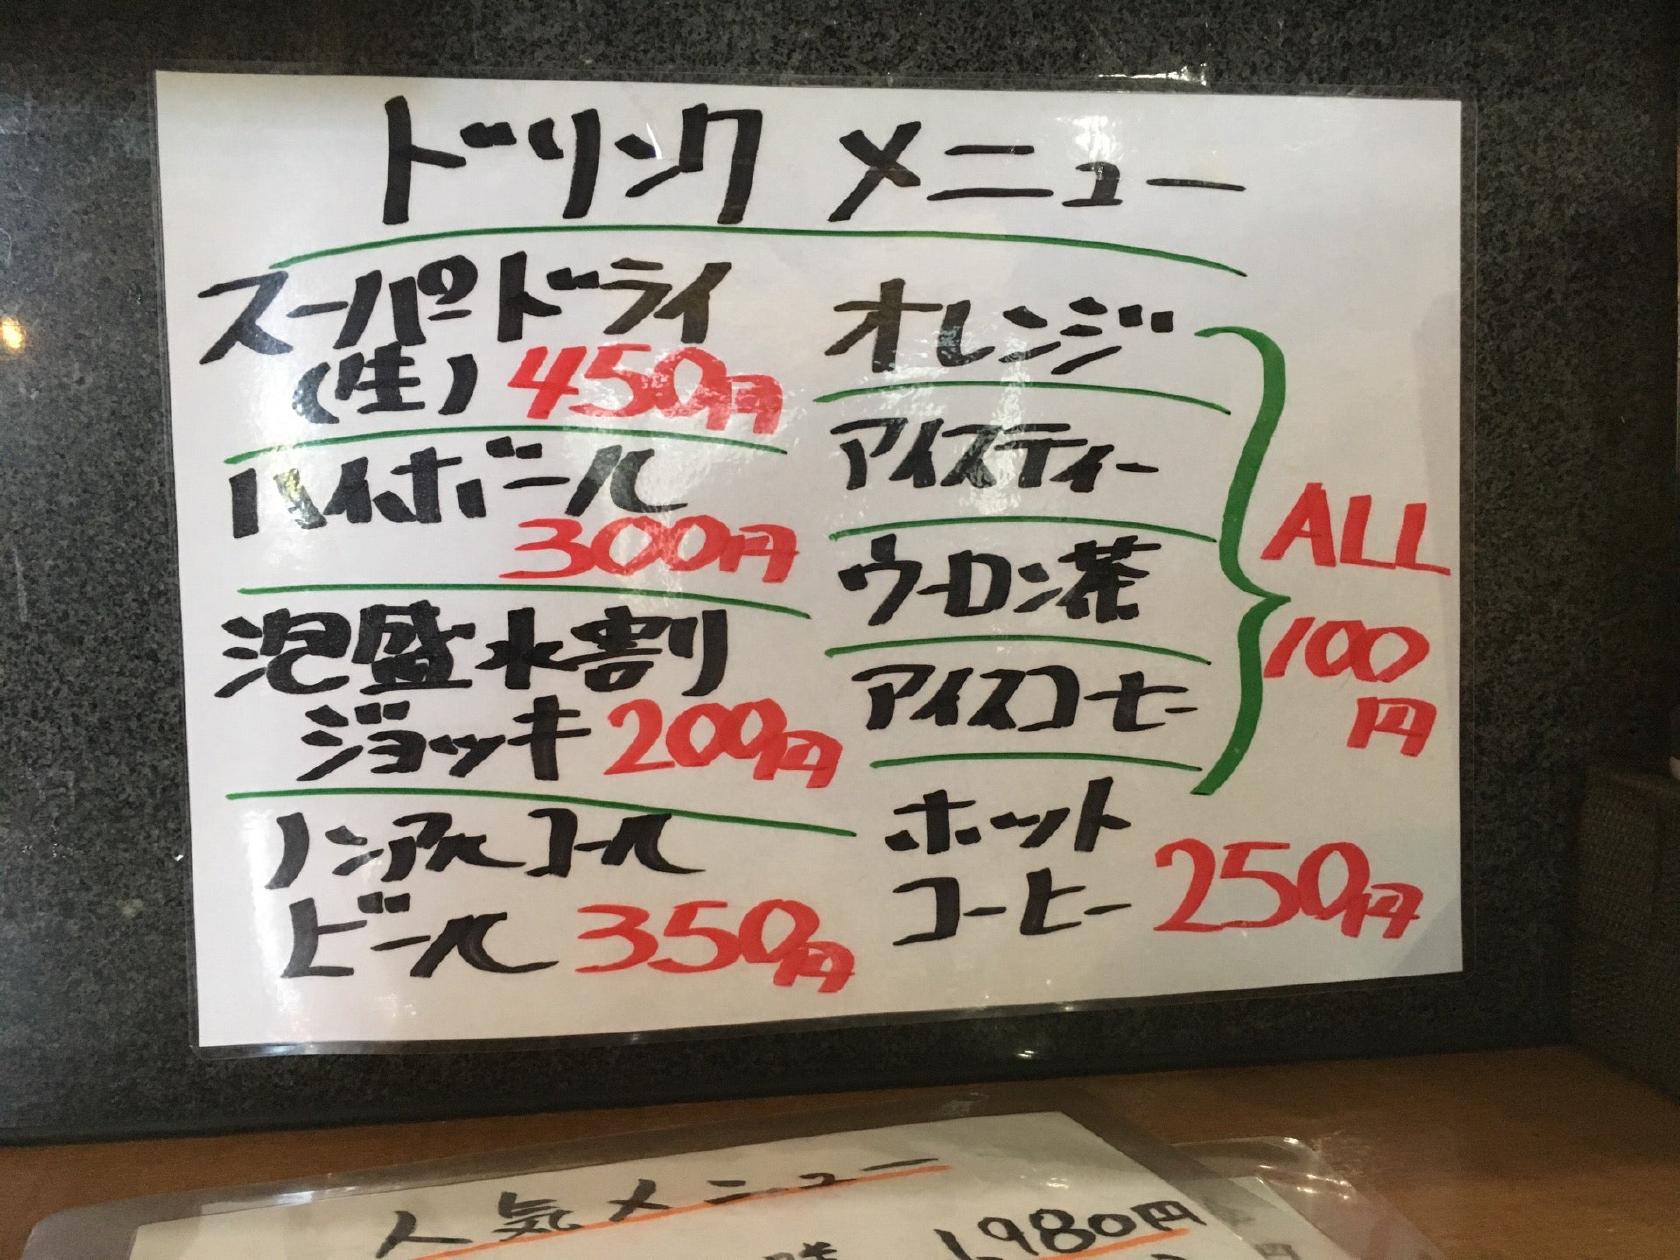 ドリンク メニュー
スーパードライ
(生) 450円
ハイボール
300円
泡盛水割
ジョッキ 200円
ノンアルコール
ビール 350円
オレンジ
アイスティー
ウーロン茶
アイスコーヒー
ALL
100
円
ホット
コーヒー 250円
人気メニュー
1,980円